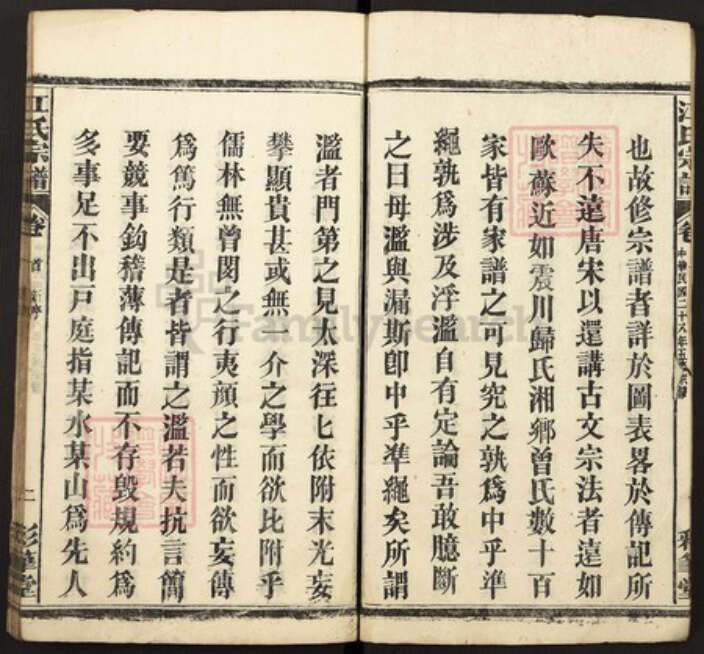 江氏宗譜
卷
中華民國二十六年五
彩筆堂
也故修宗譜者詳於圖表畧於傳記所
失不遠唐宋以還講古文宗法者遠如
歐蘇近如震川歸氏湘鄉曾氏數十百
家皆有家譜之可見究之孰爲中乎準
繩孰爲涉及浮濫自有定論吾敢臆斷
之曰毋濫與漏斯卽中乎準繩矣所謂
濫者門第之見太深往匕依附末光妄
攀顯貴甚或無一介之學而欲比附乎
儒林無曾閔之行夷顏之性而欲妄傳
爲篤行類是者皆謂之濫若夫抗言簡
要競事鈎稽薄傳記而不存毀規約爲
多事足不出戸庭指某水某山爲先人
江氏宗譜
卷首
二
彩筆堂
FamilySearch